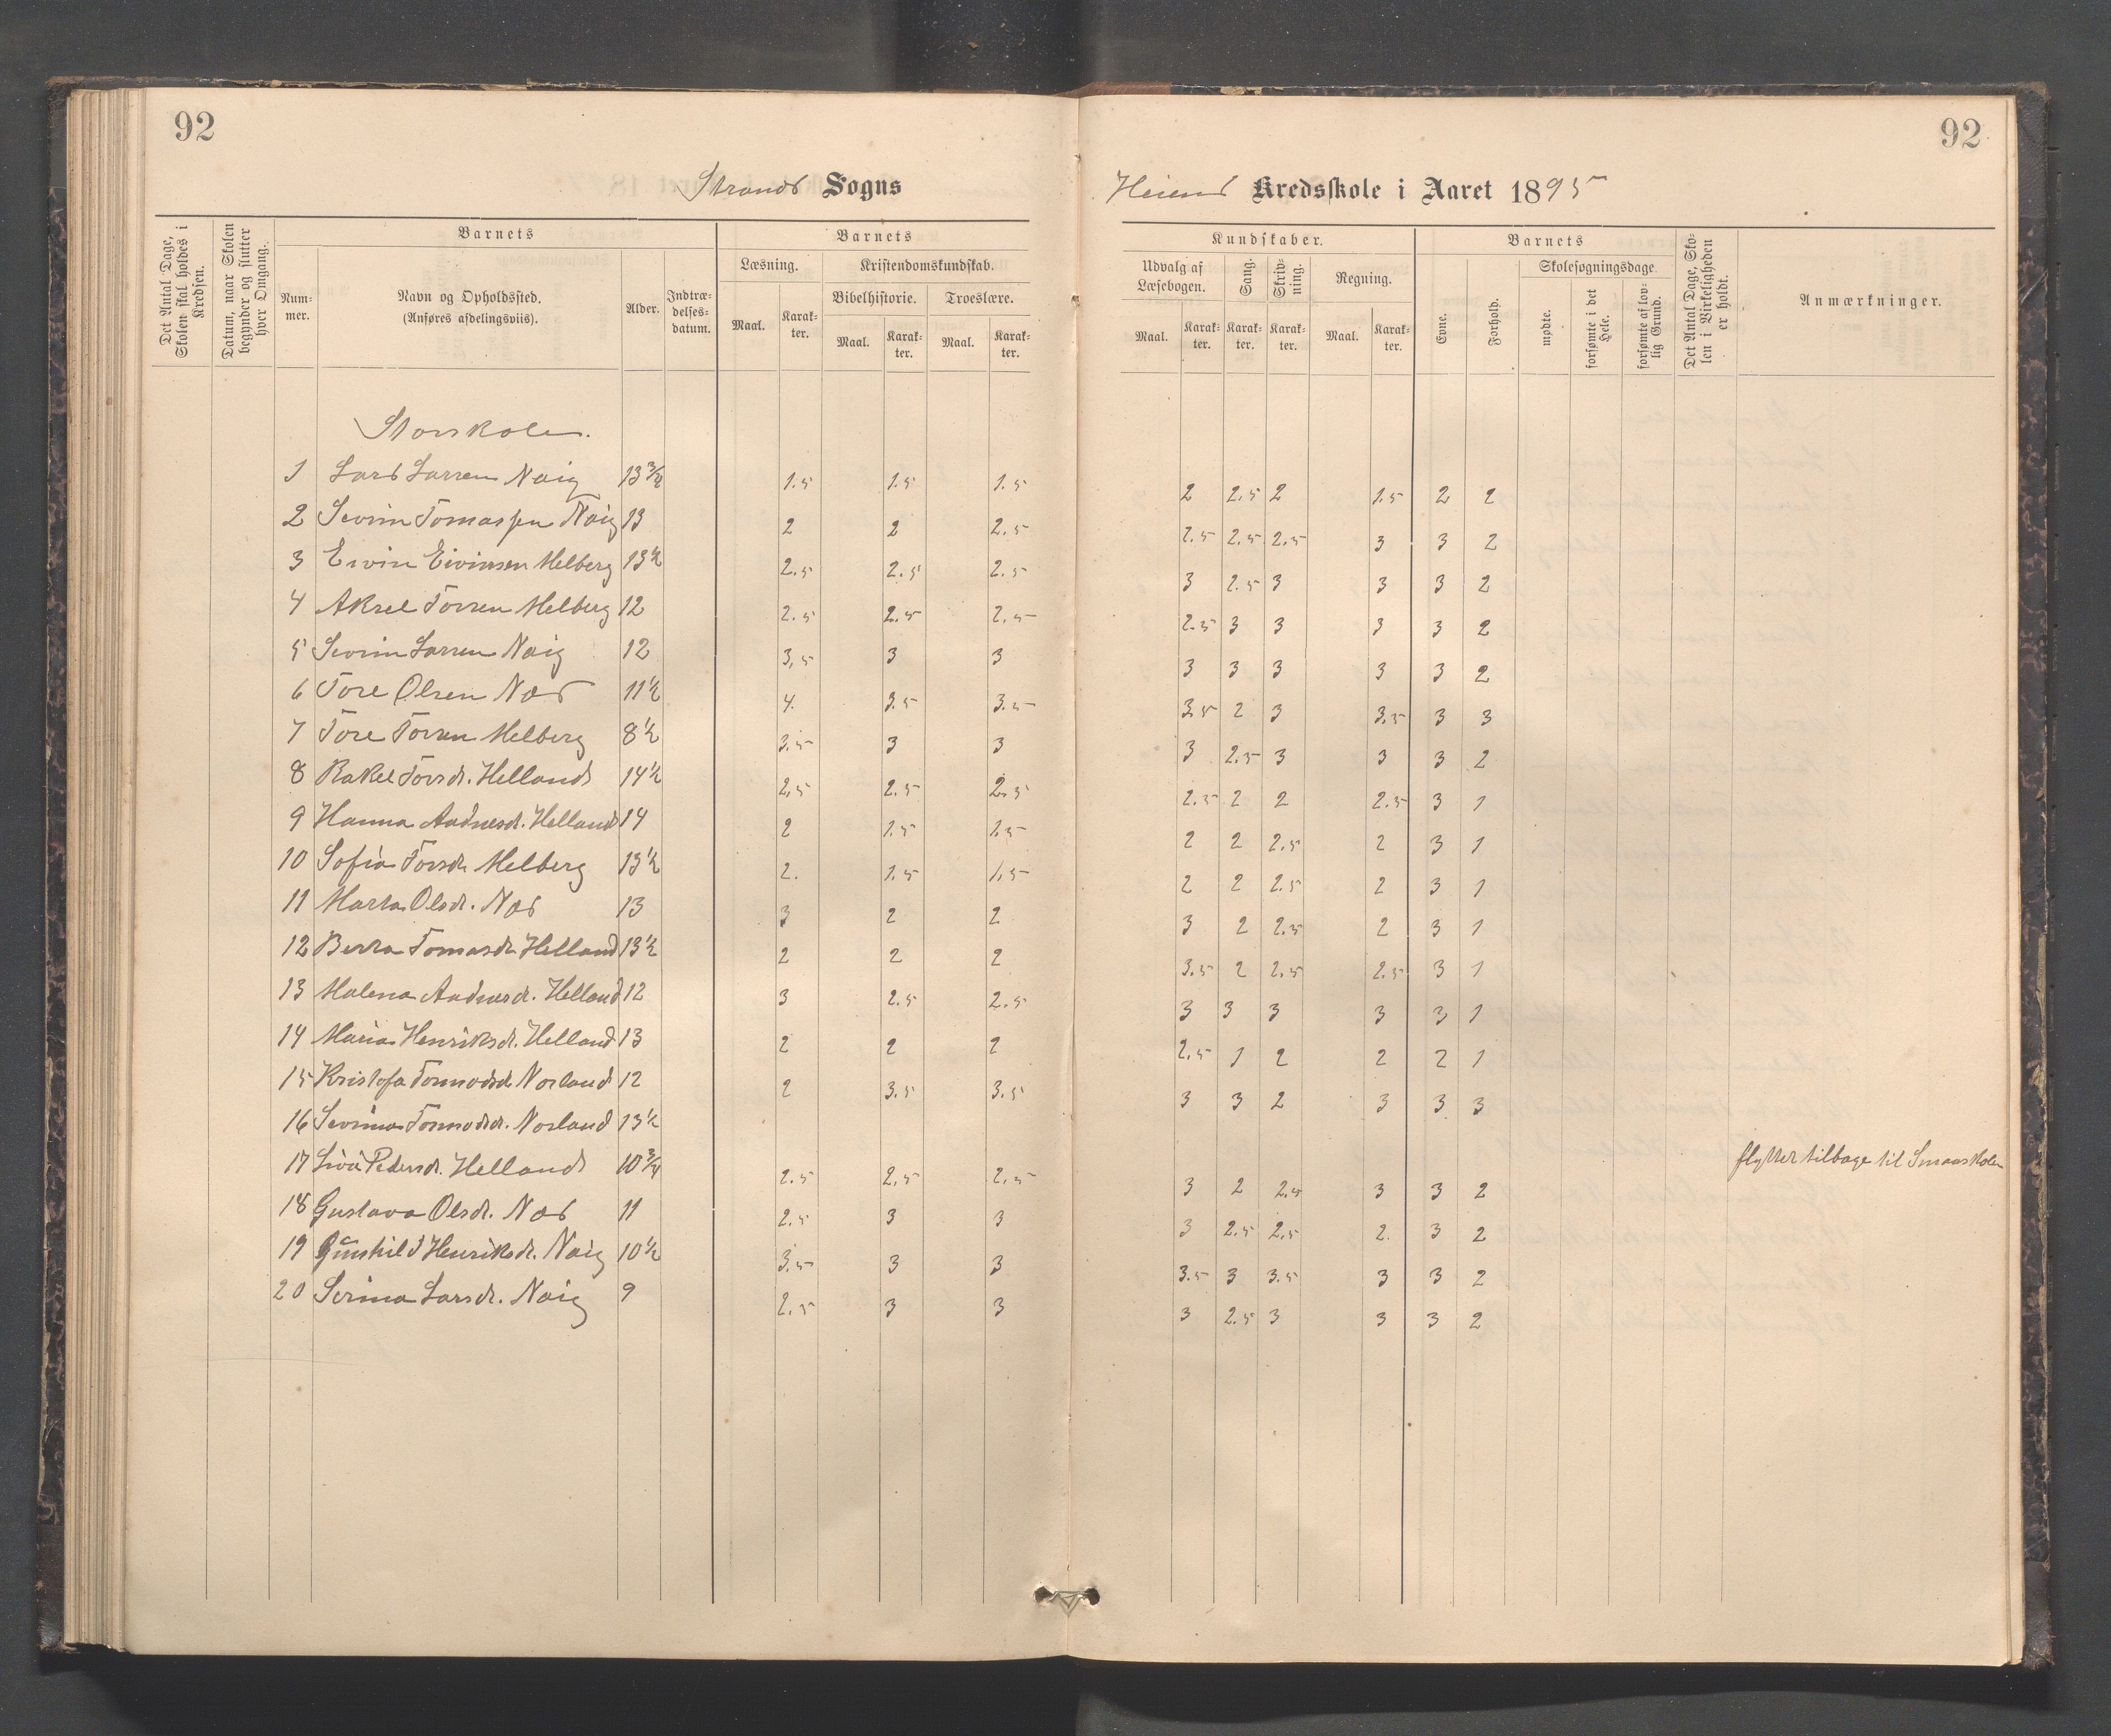 92
92
Strands Sogns
Heiens Kredsskole i Aaret 1895
Det Antal Dage, Skolen skal holdes i Kredsen.
Datum, naar Skolen begynder og slutter hver Omgang.
Barnets
Num-mer.
Navn og Opholdssted.
(Anføres afdelingsviis).
Alder.
Indtræ-delses-datum.
Barnets
Læsning.
Maal. Karak-ter.
Kristendomskundskab.
Bibelhistorie. Troeslære.
Maal. Karak-ter. Maal. Karak-ter.
Kundskaber.
Udvalg af Læsebogen.
Maal. Karak-ter.
Sang. Karak-ter.
Skriv-ning. Karak-ter.
Regning.
Maal. Karak-ter.
Barnets
Evne. Forhold.
Skolesøgningsdage.
mødte. forsømte i det Hele. forsømte af lov-lig Grund.
Det Antal Dage, Sko-len i Virkeligheden er holdt.
Anmærkninger.
Storskolen.
1 Lars Larsen Naig 13 3/4 1.5 1.5 1.5 2 2.5 2 1.5 2 2
2 Sevrin Tomassen Naig 13 2 2 2.5 2.5 2.5 2.5 3 3 2
3 Eivin Eivinsen Melberg 13 1/2 2.5 2.5 2.5 3 2.5 3 3 3 2
4 Aksel Torsen Melberg 12 2.5 2.5 2.5 2.5 3 3 3 3 2
5 Sevrin Larsen Naig 12 3,5 3 3 3 3 3 3 3 2
6 Tore Olsen Nas 11 1/2 4. 3.5 3.5 3.5 2 3 3.5 3 3
7 Tore Torsen Melberg 8 1/2 3.5 3 3 3 2.5 3 3 3 2
8 Rakel Torsdr. Helland 14 1/2 2,5 2.5 2.5 2.5 2 2 2.5 3 1
9 Hanna Aadnesd. Helland 14 2 1.5 1.5 2 2 2.5 2 3 1
10 Sofia Torsdr Melberg 13 1/2 2. 1.5 1.5 2 2 2.5 2 3 1
11 Marta Olsdr. Nas 13 3 2 2 3 2 2.5 2 3 1
12 Berta Tomasdr. Helland 13 1/2 2 2 2 3.5 2 2.5 2.5 3 1
13 Malena Aadnesdr. Helland 12 3 2.5 2.5 3 3 3 3 3 1
14 Maria Henriksdr. Helland 13 2 2 2 2.5 1 2 2 2 1
15 Kristofa Tormodsd. Norland 12 2 3.5 3.5 3 3 2 3 3 3
16 Sevrina Tormodsdr. Norland 13 1/2 flyttet tilbage til Smaaskolen
17 Siva Pedersdr. Helland 10 3/4 2.5 2.5 2.5 3 2 2.5 3 3 2
18 Gustava Olsdr. Nas 11 2.5 3 3 3 2.5 2.5 2. 3 2
19 Gunhild Henriksdr. Naig 10 1/2 3.5 3 3 3.5 3 3.5 3 3 2
20 Serina Larsdr. Naig 9 2.5 3 3 3 2.5 3 3 3 2